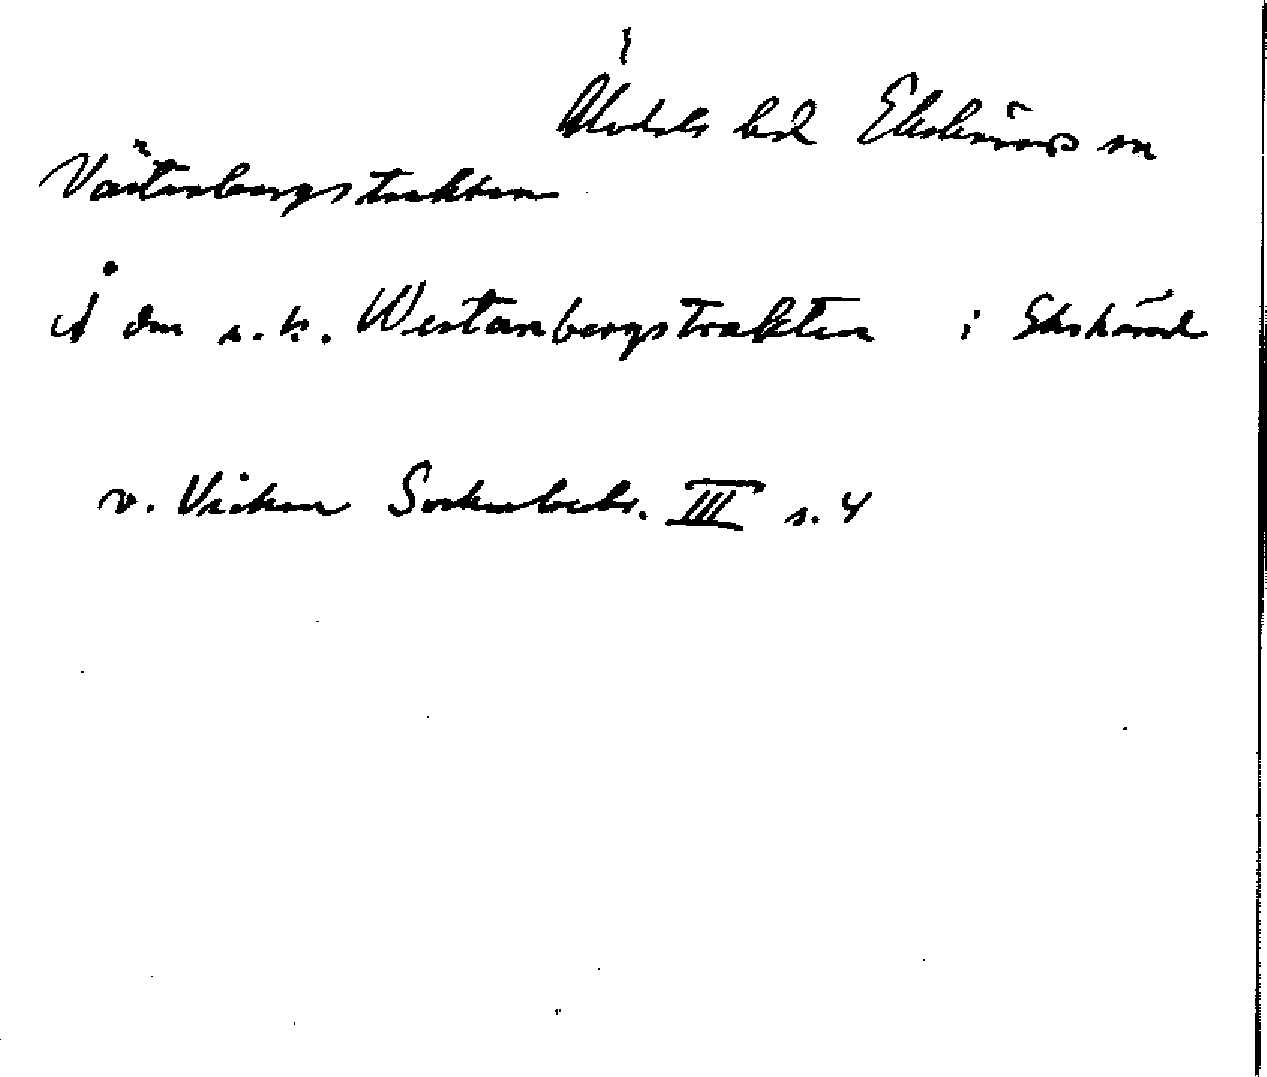 Åkerbo hd Ekshärads sn
Västanbergstrakten
Å den s.k. Westanbergstrakten i Ekshärad
v. Vicken Sockenbeskr. III s. 4